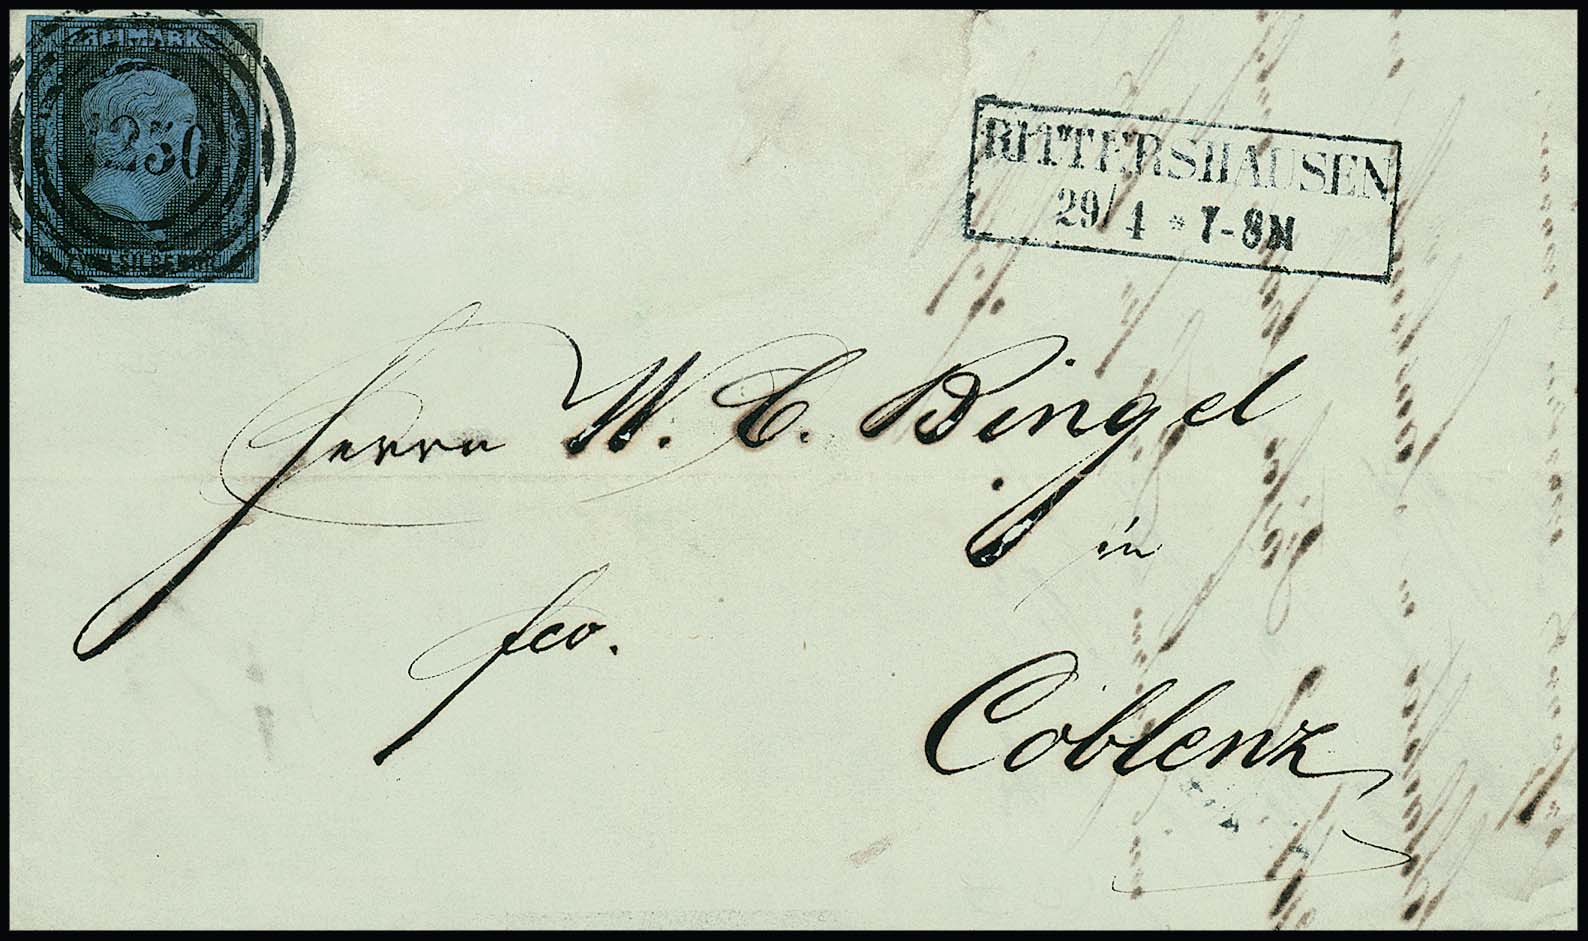 FREIMARK
1250
ZWEI SILBERGR.
RITTERSHAUSEN
29/4 * 7-8 N
Herrn W. C. Bingel
in
fco.
Coblenz